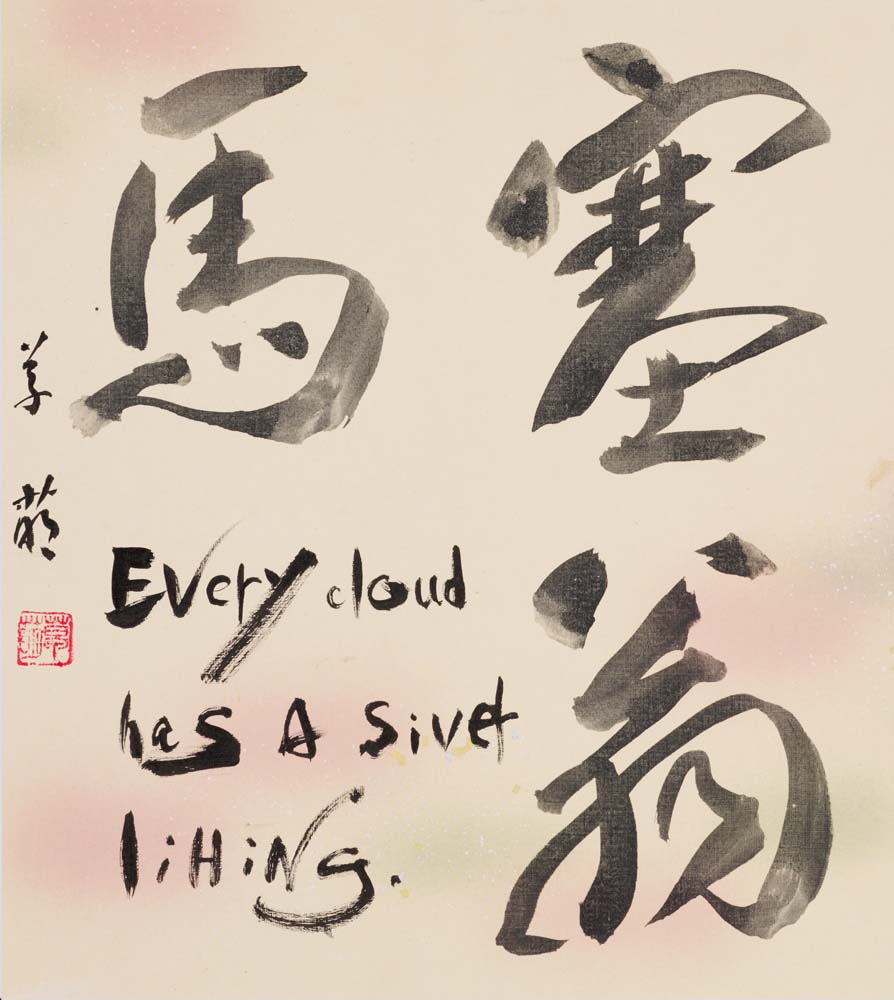 塞翁
馬
EVery cloud
has A Siver
liHiNG.